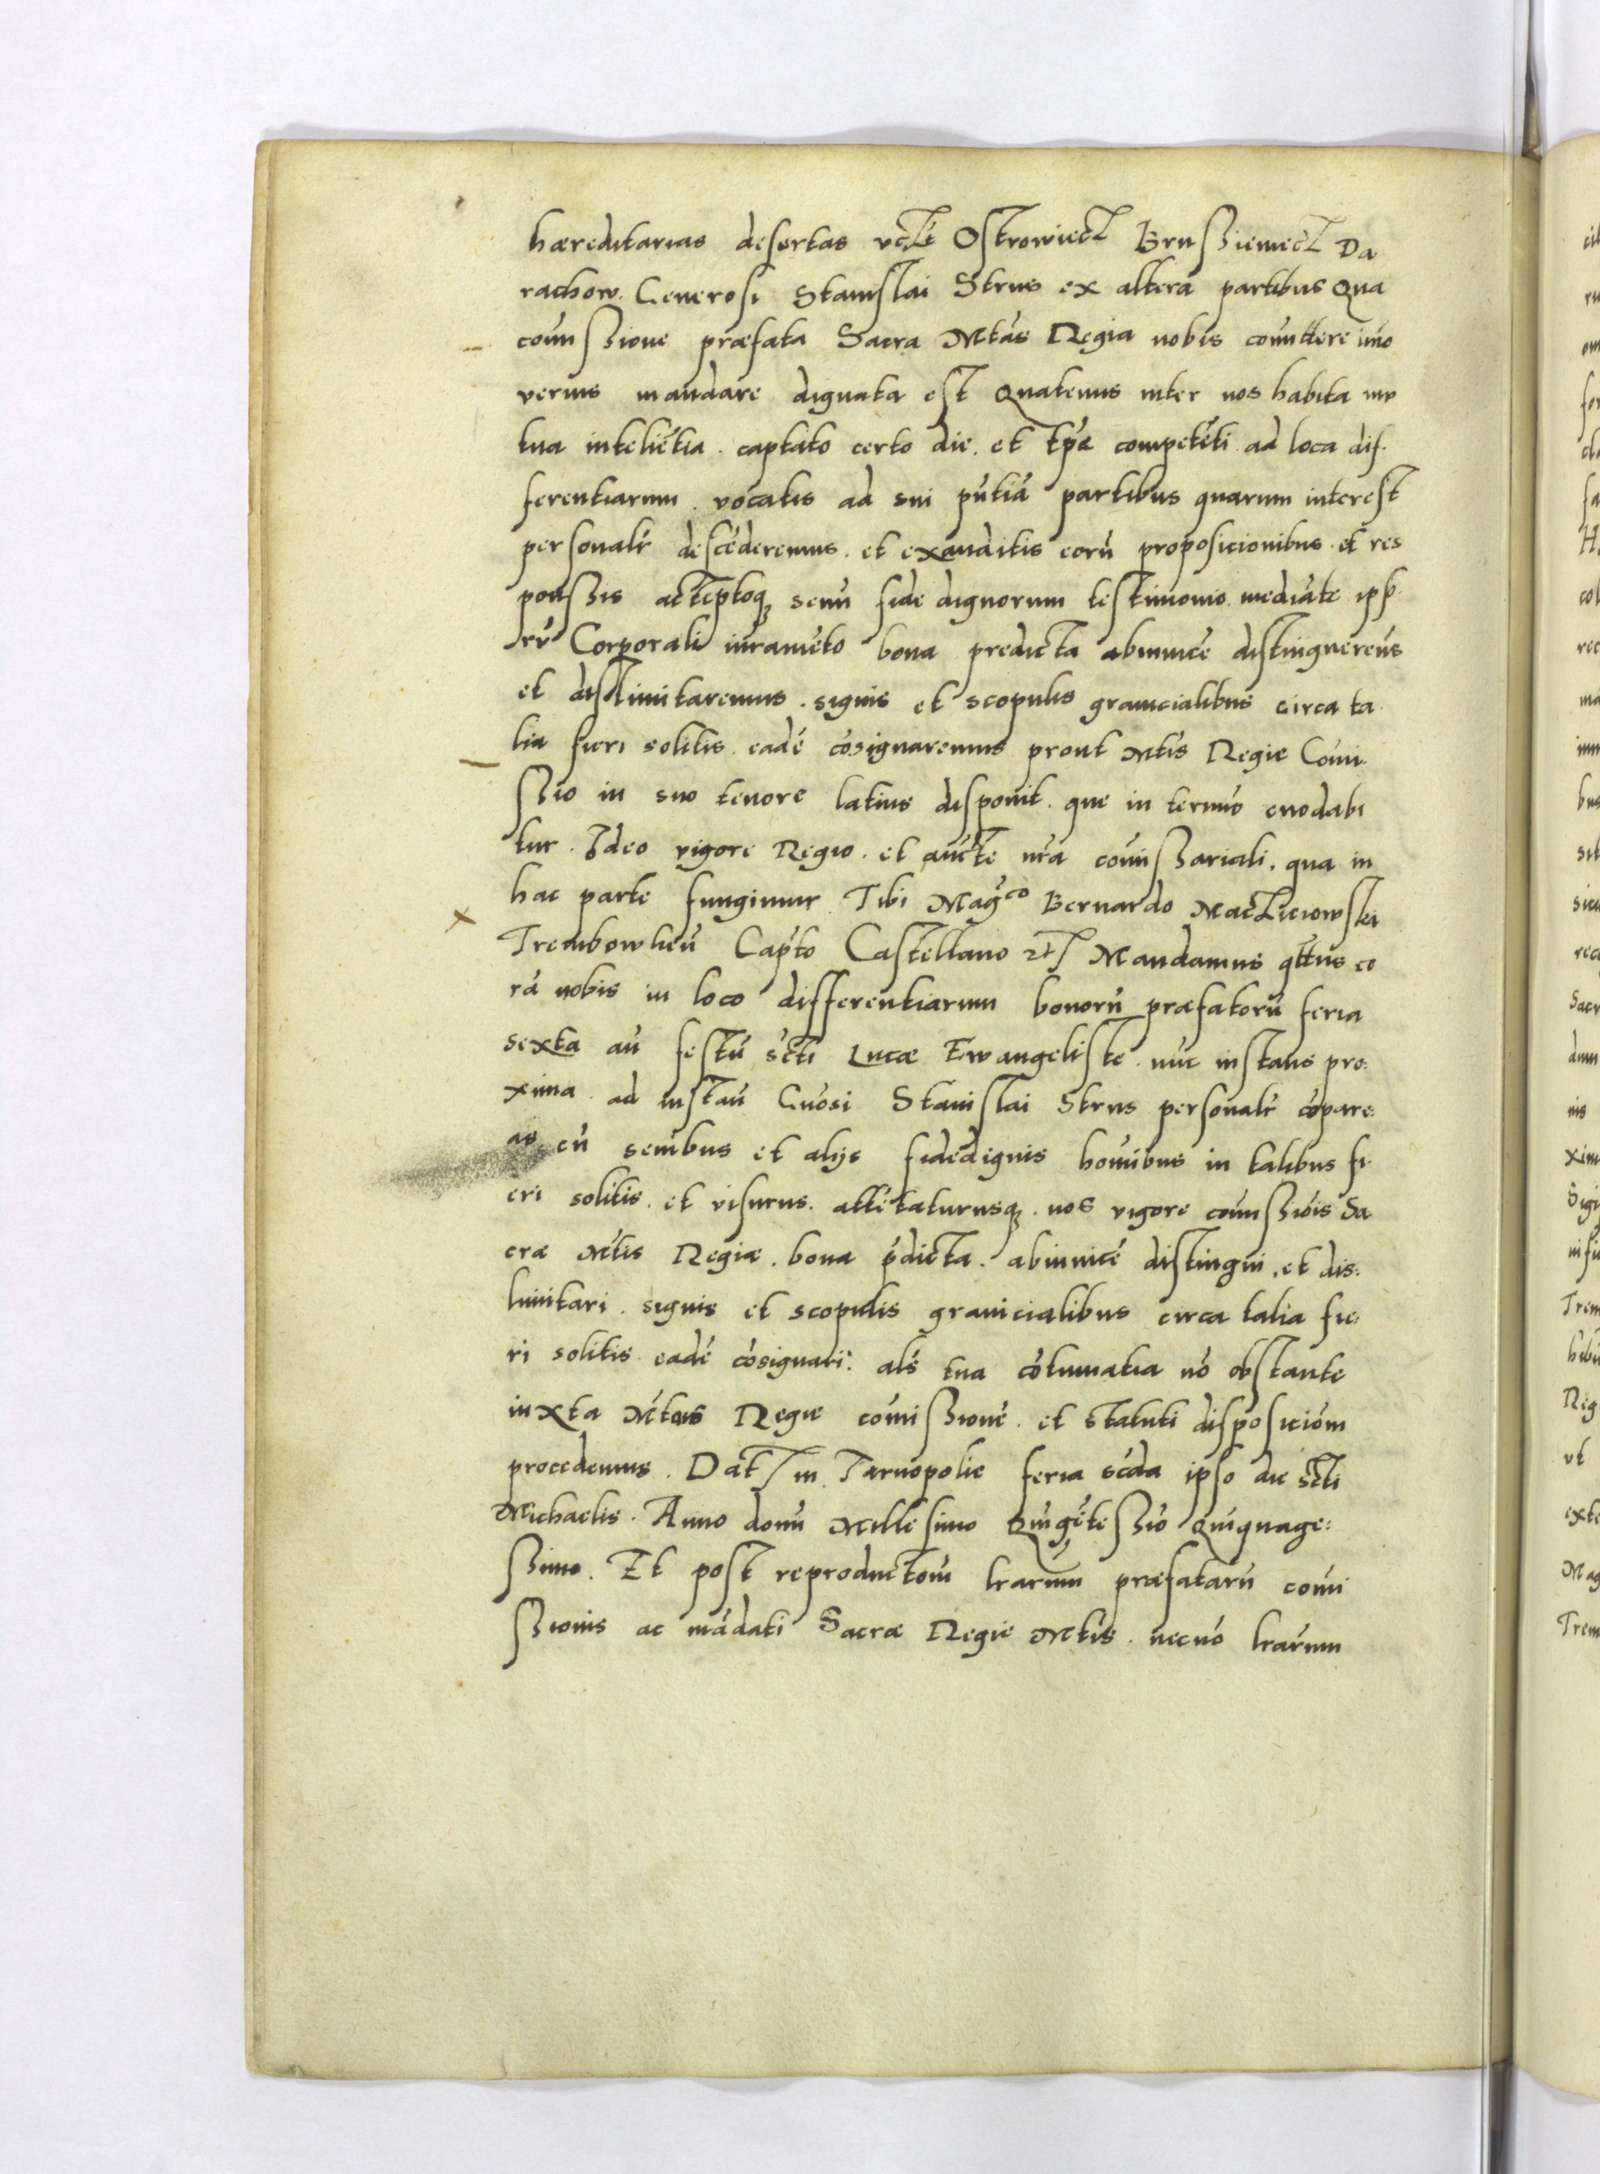 hæreditarias desertas vcƶlt Ostrowiecz Brussiemecz Da
rachow. Generosi Stanislai Strus ex altera partibus Qua
comissione præfata Sacra Mtas Regia nobis comittere imo
verius mandare dignata est Quatenus inter nos habita mu
tua inteliētia. captato certo die. et tpe competēti ad loca dif-
ferentiarum. vocatis ad sui pūtiā partibus quarum interest
personalr descēderemus. et exauditis eorū proposicionibus. et res
ponssis acceptoq; senū fide dignorum testimonio mediāte ipso
rū Corporali iuramēto bona predicta abinuicē distinguereūs
et dislimitaremus. signis et scopulis granicialibus circa ta
lia fieri solitis eadē cōsignaremus prout Mtis Regie Comi
ssio in suo tenore latius disponit. que in termīo enodabi
tur. Ideo vigore Regio. et aucte nra comissariali. qua in
hac parte fungimur. Tibi Magco Bernardo Macziciowski
Trembowlieñ Capto Castellano etz Mandamus qttus co
rā nobis in loco differentiarum bonorū præfatorū feria
sexta añ festū scti Lucæ Ewangeliste. nūc instans pro:
xima. ad instañ Gnosi Stanislai Strus personalr cōpare:
as cū senibus et alijs fidedignis hominibus in talibus fi
eri solitis. et visurus. attētaturusq;. nos vigore comissiōis Sa
cræ Mtis Regiæ. bona pdicta. abinuicē distingui. et dis:
limitari. signis et scopulis granicialibus circa talia fie:
ri solitis eadē cōsignari: als tua cōtumatia nō obstante
iuxta Mtis Regie comissionē. et statuti disposiciom
procedemus. Datz in Tarnopolie feria scda ipso die scti
Michaelis. Anno domi Millesimo Quīgētessīo Quīquage:
ssimo. Et post reproductiom lrarum præfatarū comi
ssionis ac mādati Sacræ Regie Mtis. necnō lrarum